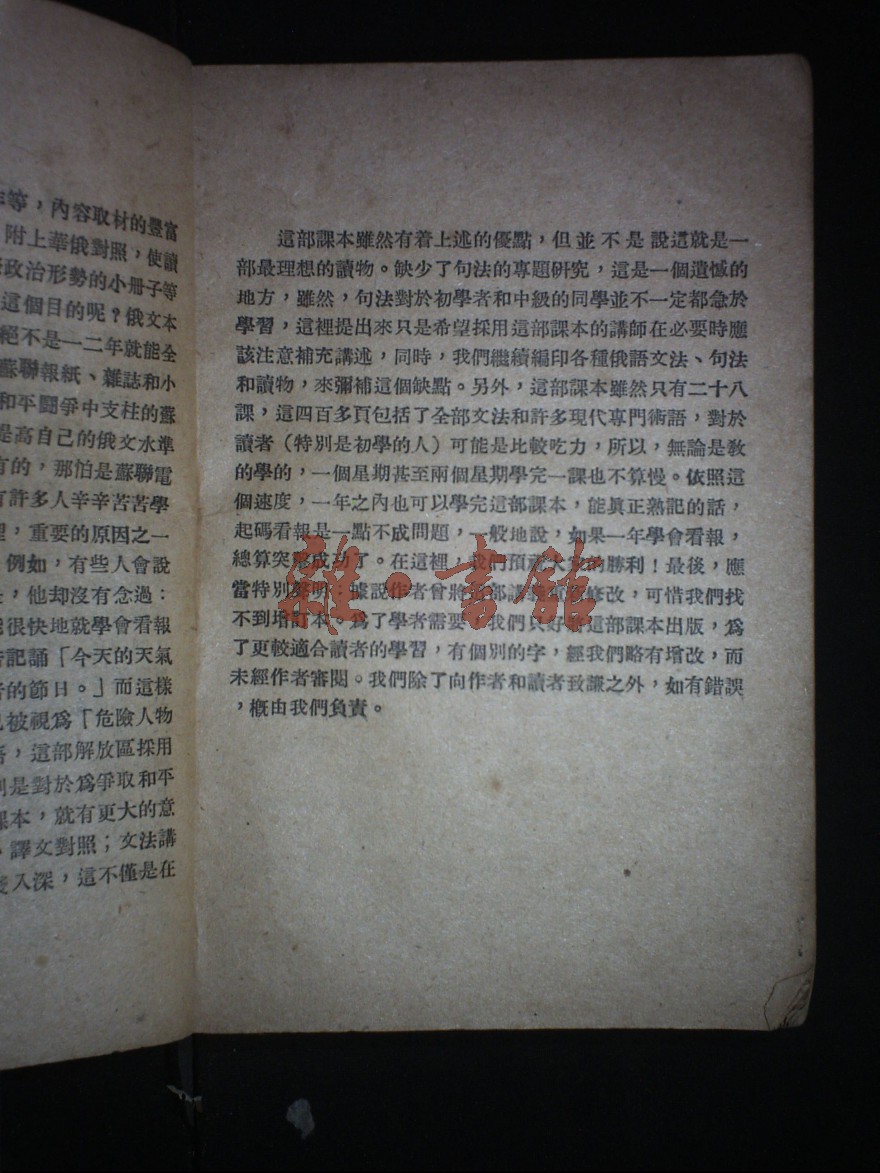 等，內容取材的豐富
附上華俄對照，使讀
政治形勢的小册子等
這個目的呢？俄文本
絕不是一二年就能全
蘇聯報紙、雜誌和小
和平鬪爭中支柱的蘇
是高自己的俄文水準
有的，那怕是蘇聯電
有許多人辛辛苦苦學
理，重要的原因之一
例如，有些人會說
，他却沒有念過：
很快地就學會看報
記誦「今天的天氣
者的節日。」而這樣
被視爲「危險人物
，這部解放區採用
別是對於爲爭取和平
課本，就有更大的意
譯文對照；文法講
入深，這不僅是在
這部課本雖然有着上述的優點，但並不是說這就是一
部最理想的讀物。缺少了句法的專題研究，這是一個遺憾的
地方，雖然，句法對於初學者和中級的同學並不一定都急於
學習，這裡提出來只是希望採用這部課本的講師在必要時應
該注意補充講述，同時，我們繼續編印各種俄語文法、句法
和讀物，來彌補這個缺點。另外，這部課本雖然只有二十八
課，這四百多頁包括了全部文法和許多現代專門術語，對於
讀者（特別是初學的人）可能是比較吃力，所以，無論是敎
的學的，一個星期甚至兩個星期學完一課也不算慢。依照這
個速度，一年之內也可以學完這部課本，能眞正熟記的話，
起碼看報是一點不成問題，一般地說，如果一年學會看報，
總算突擊成功了。在這裡，我們預祝大家的勝利！最後，應
當特別聲明：據說作者曾將這部講義有所修改，可惜我們找
不到增訂本。爲了學者需要，我們只好將這部課本出版，爲
了更較適合讀者的學習，有個別的字，經我們略有增改，而
未經作者審閱。我們除了向作者和讀者致謙之外，如有錯誤
，槪由我們負責。
雜·書館